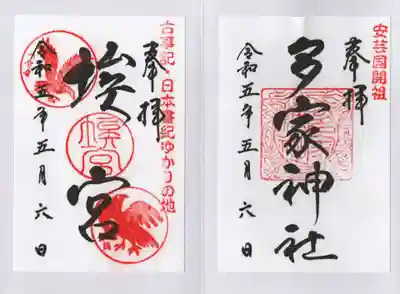 古事記・日本書紀ゆかりの地
奉拝
埃宮
埃宮
令和五年五月六日
安芸国開祖
奉拝
多家神社
令和五年五月六日